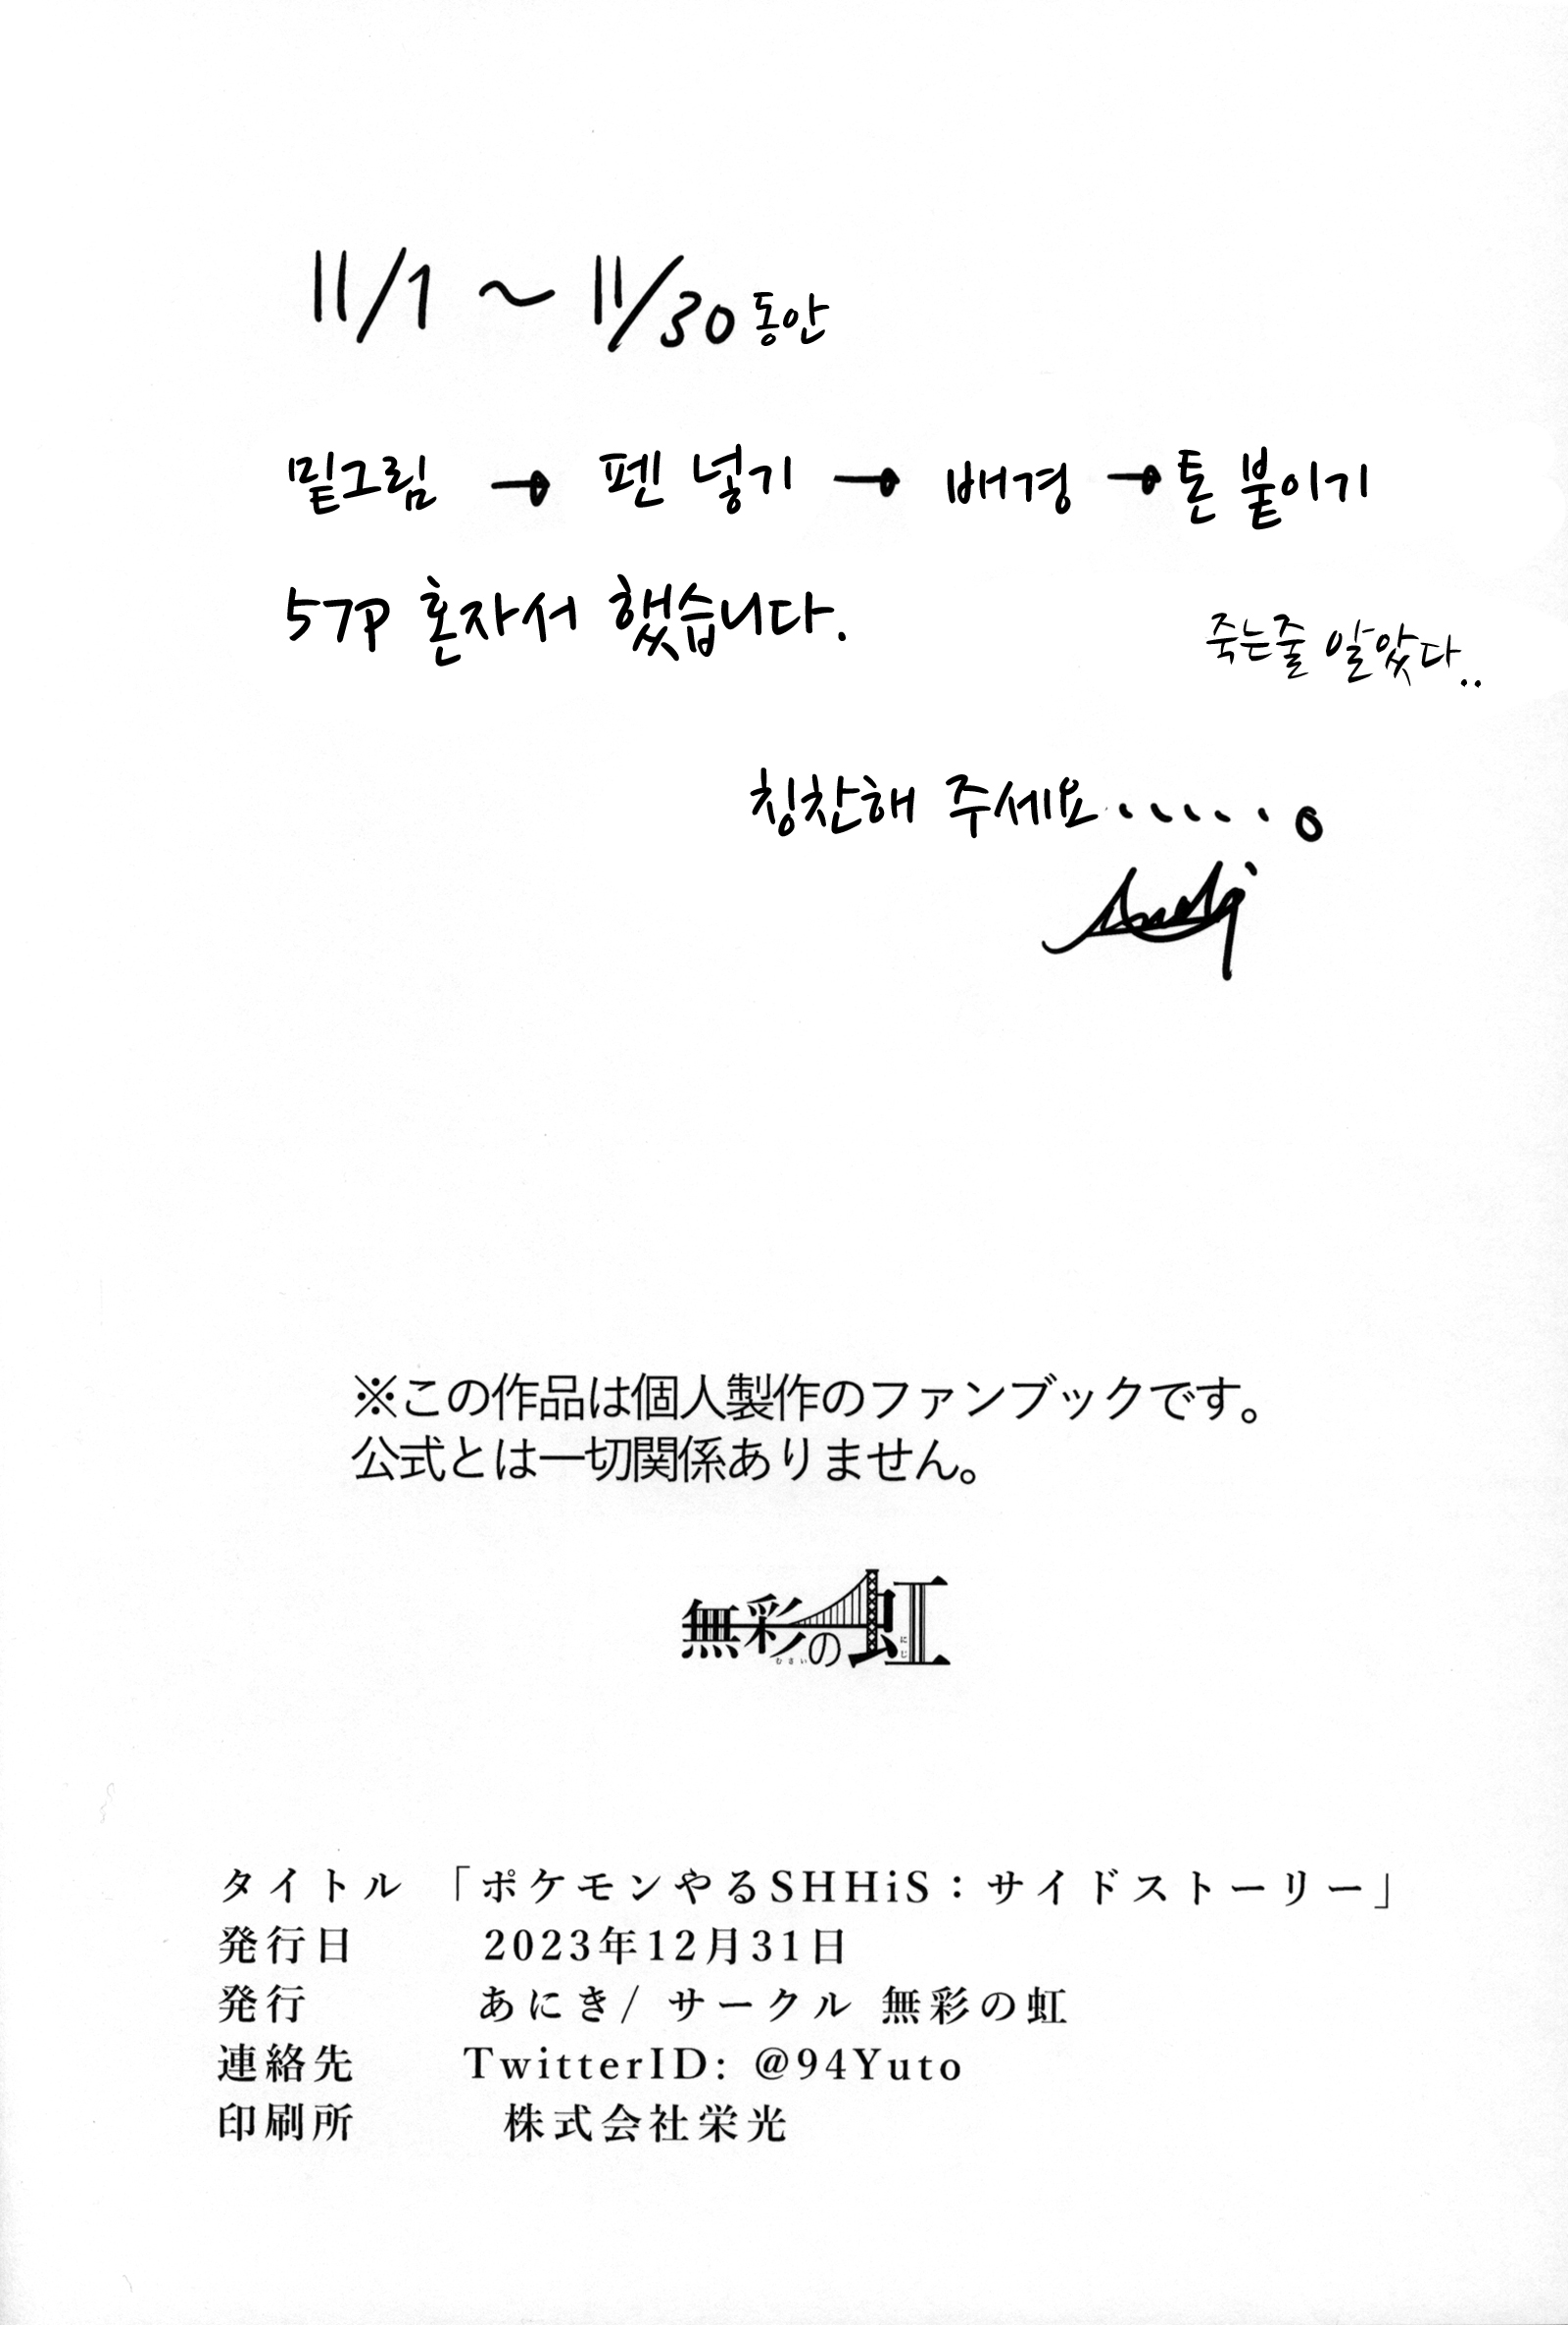 11/1 ~ 11/30 동안
밑그림 → 펜 넣기 → 배경 → 톤 붙이기
57P 혼자서 했습니다.
죽는줄 알았다..
칭찬해 주세요......。
※この作品は個人製作のファンブックです。
公式とは一切関係ありません。
無彩の虹
むさい にじ
タイトル 「ポケモンやるSHHiS：サイドストーリー」
発行日 2023年12月31日
発行 あにき/ サークル 無彩の虹
連絡先 TwitterID: @94Yuto
印刷所 株式会社栄光